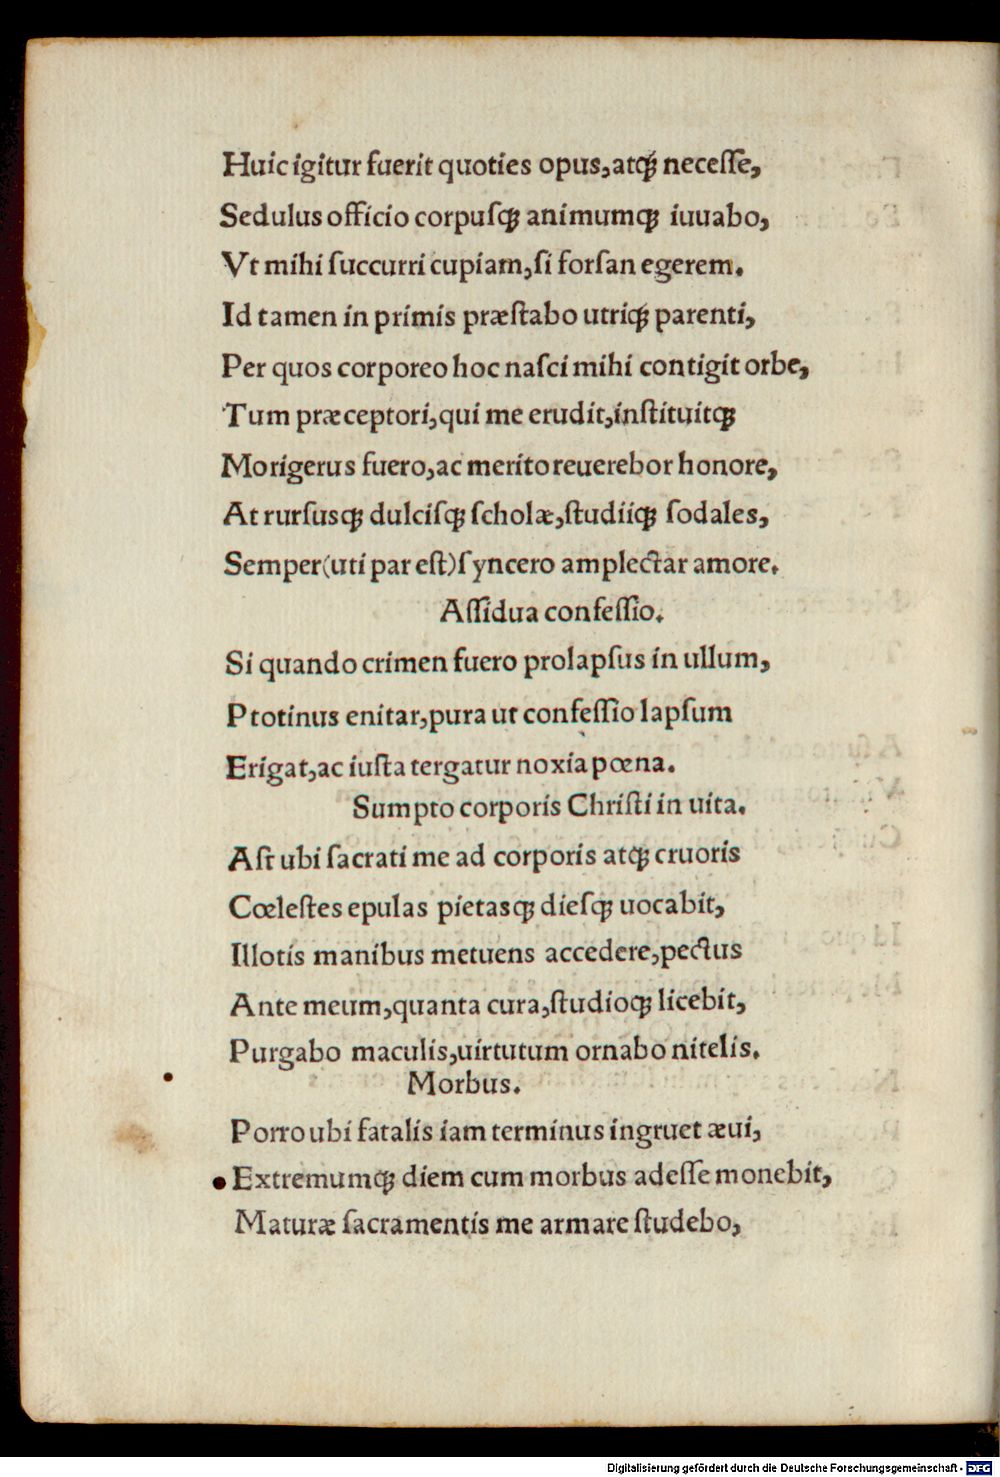 Huic igitur fuerit quoties opus, atqꝫ neceſſe,
Sedulus officio corpuſqꝫ animumqꝫ iuuabo,
Vt mihi ſuccurri cupiam, ſi forſan egerem.
Id tamen in primis præſtabo utriqꝫ parenti,
Per quos corporeo hoc naſci mihi contigit orbe,
Tum præceptori, qui me erudit, inſtituitqꝫ
Morigerus fuero, ac merito reuerebor honore,
At rurſusqꝫ dulciſqꝫ ſcholæ, ſtudiiqꝫ ſodales,
Semper (uti par eſt) ſyncero amplectar amore.
Aſſidua confeſſio.
Si quando crimen fuero prolapſus in ullum,
Ptotinus enitar, pura ut confeſſio lapſum
Erigat, ac iuſta tergatur noxia pœna.
Sumpto corporis Chriſti in uita.
Aſt ubi ſacrati me ad corporis atqꝫ cruoris
Cœleſtes epulas pietasqꝫ dieſqꝫ uocabit,
Illotis manibus metuens accedere, pectus
Ante meum, quanta cura, ſtudioqꝫ licebit,
Purgabo maculis, uirtutum ornabo nitelis.
Morbus.
Porro ubi fatalis iam terminus ingruet æui,
Extremumqꝫ diem cum morbus adeſſe monebit,
Maturæ ſacramentis me armare ſtudebo,
Digitalisierung gefördert durch die Deutsche Forschungsgemeinschaft - DFG